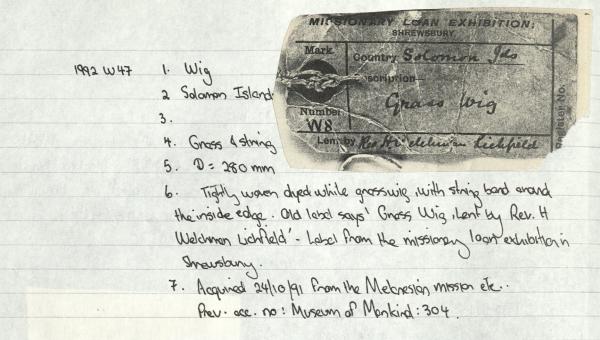 MISSIONARY LOAN EXHIBITION,
SHREWSBURY.
Mark
Country Solomon Ids
scription
Grass Wig
Number
W8.
Lent by Rev H Lichfield
Register No.
1992 W47 1. Wig
2 Solomon Island
3.
4. Grass & string
5. D = 280 mm
6. Tightly woven dyed white grass wig, with string band around
the inside edge. Old label says 'Grass Wig, Lent by Rev. H
Welchman Lichfield' - Label from the missionary loan exhibition in
Shrewsbury.
7. Acquired 24/10/91 from the Melanesian mission etc..
Prev. acc. no: Museum of Mankind: 304.